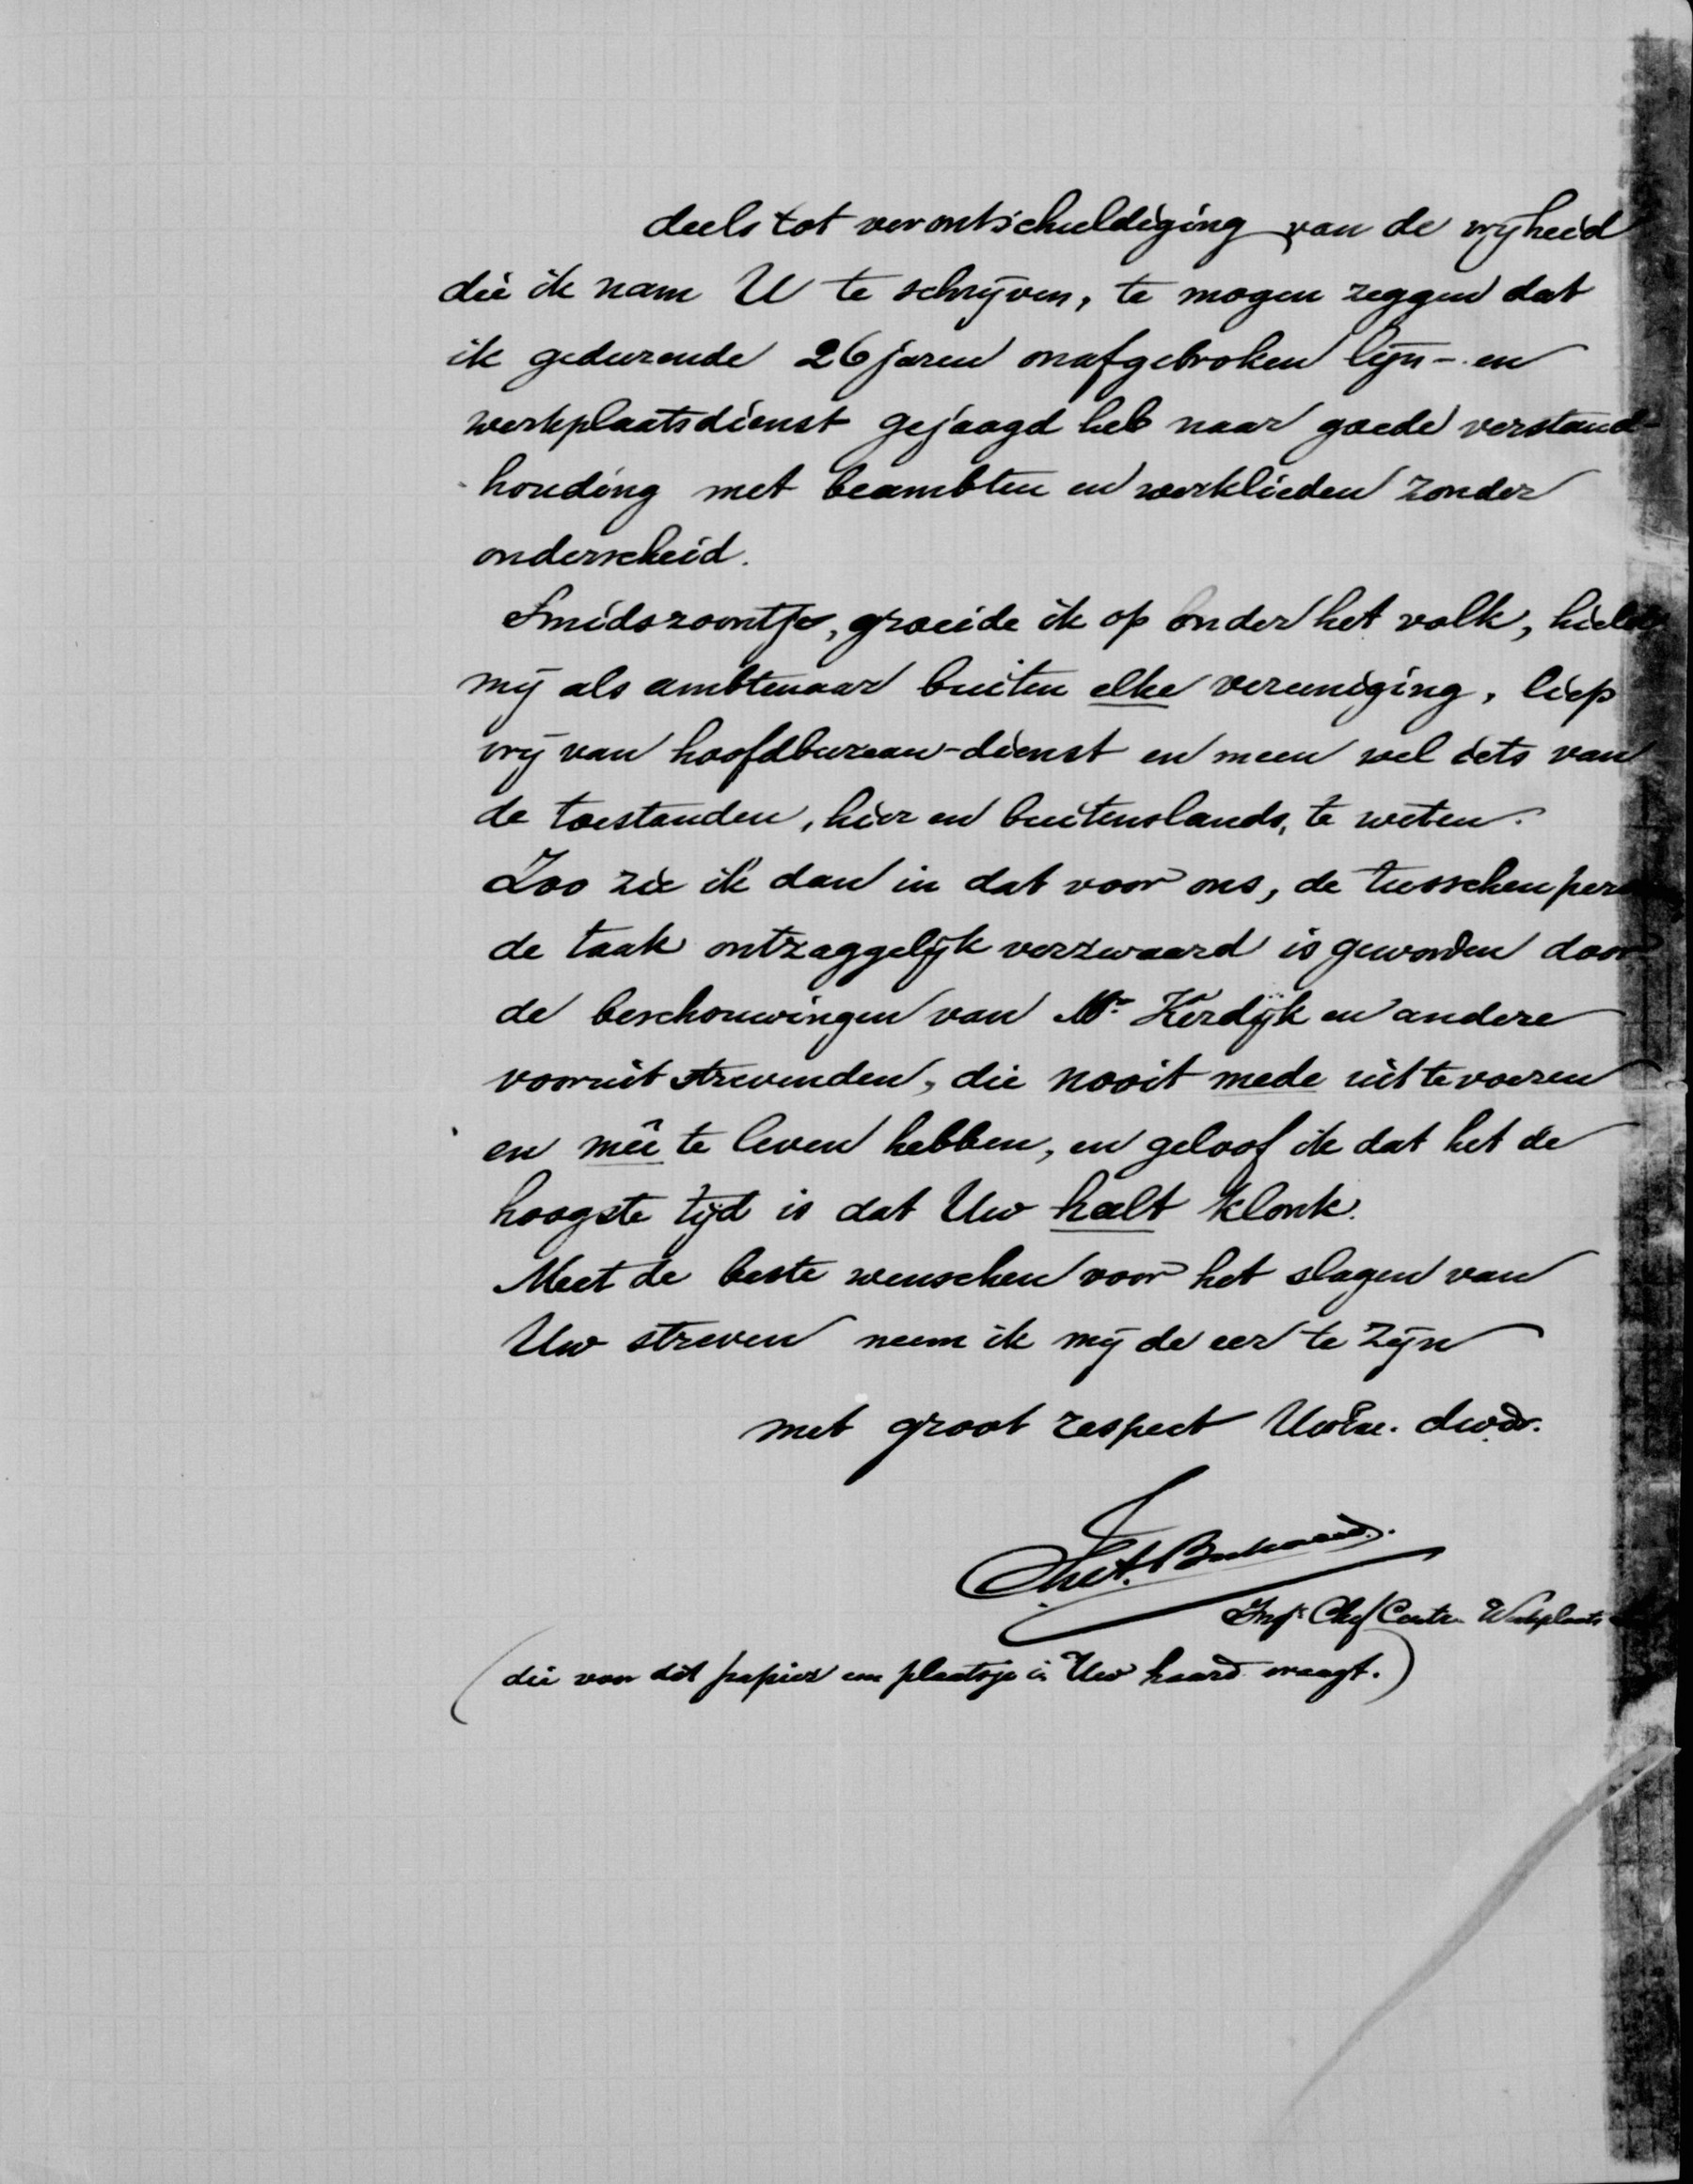 deels tot verontschuldiging van de vrijheid
die ik nam U te schrijven, te mogen zeggen dat
ik gedurende 26 jaren onafgebroken lijn- en
werkplaatsdienst gejaagd heb naar goede verstand-
houding met beambten en werklieden zonder
onderscheid.
Smidszoontje, groeide ik op onder het volk, hield
mij als ambtenaar buiten elke vereeniging, liep
vrij van hoofdbureau-dienst en meen wel iets van
de toestanden, hier en buitenslands, te weten.
Zoo zie ik dan in dat voor ons, de tusschenper
de taak ontzaggelijk verzwaard is geworden door
de beschouwingen van Mr. Kerdijk en andere
vooruitstrevenden, die nooit mede uit te voeren
en meê te leven hebben, en geloof ik dat het de
hoogste tijd is dat Uw halt klonk.
Meet de beste wenschen voor het slagen van
Uw streven neem ik mij de eer te zijn
met groot respect UwEw. dwdr.
Ingr. Chef Centr. Werkplaats
(die voor dit papier een plaatsje in Uw haard vraagt.)